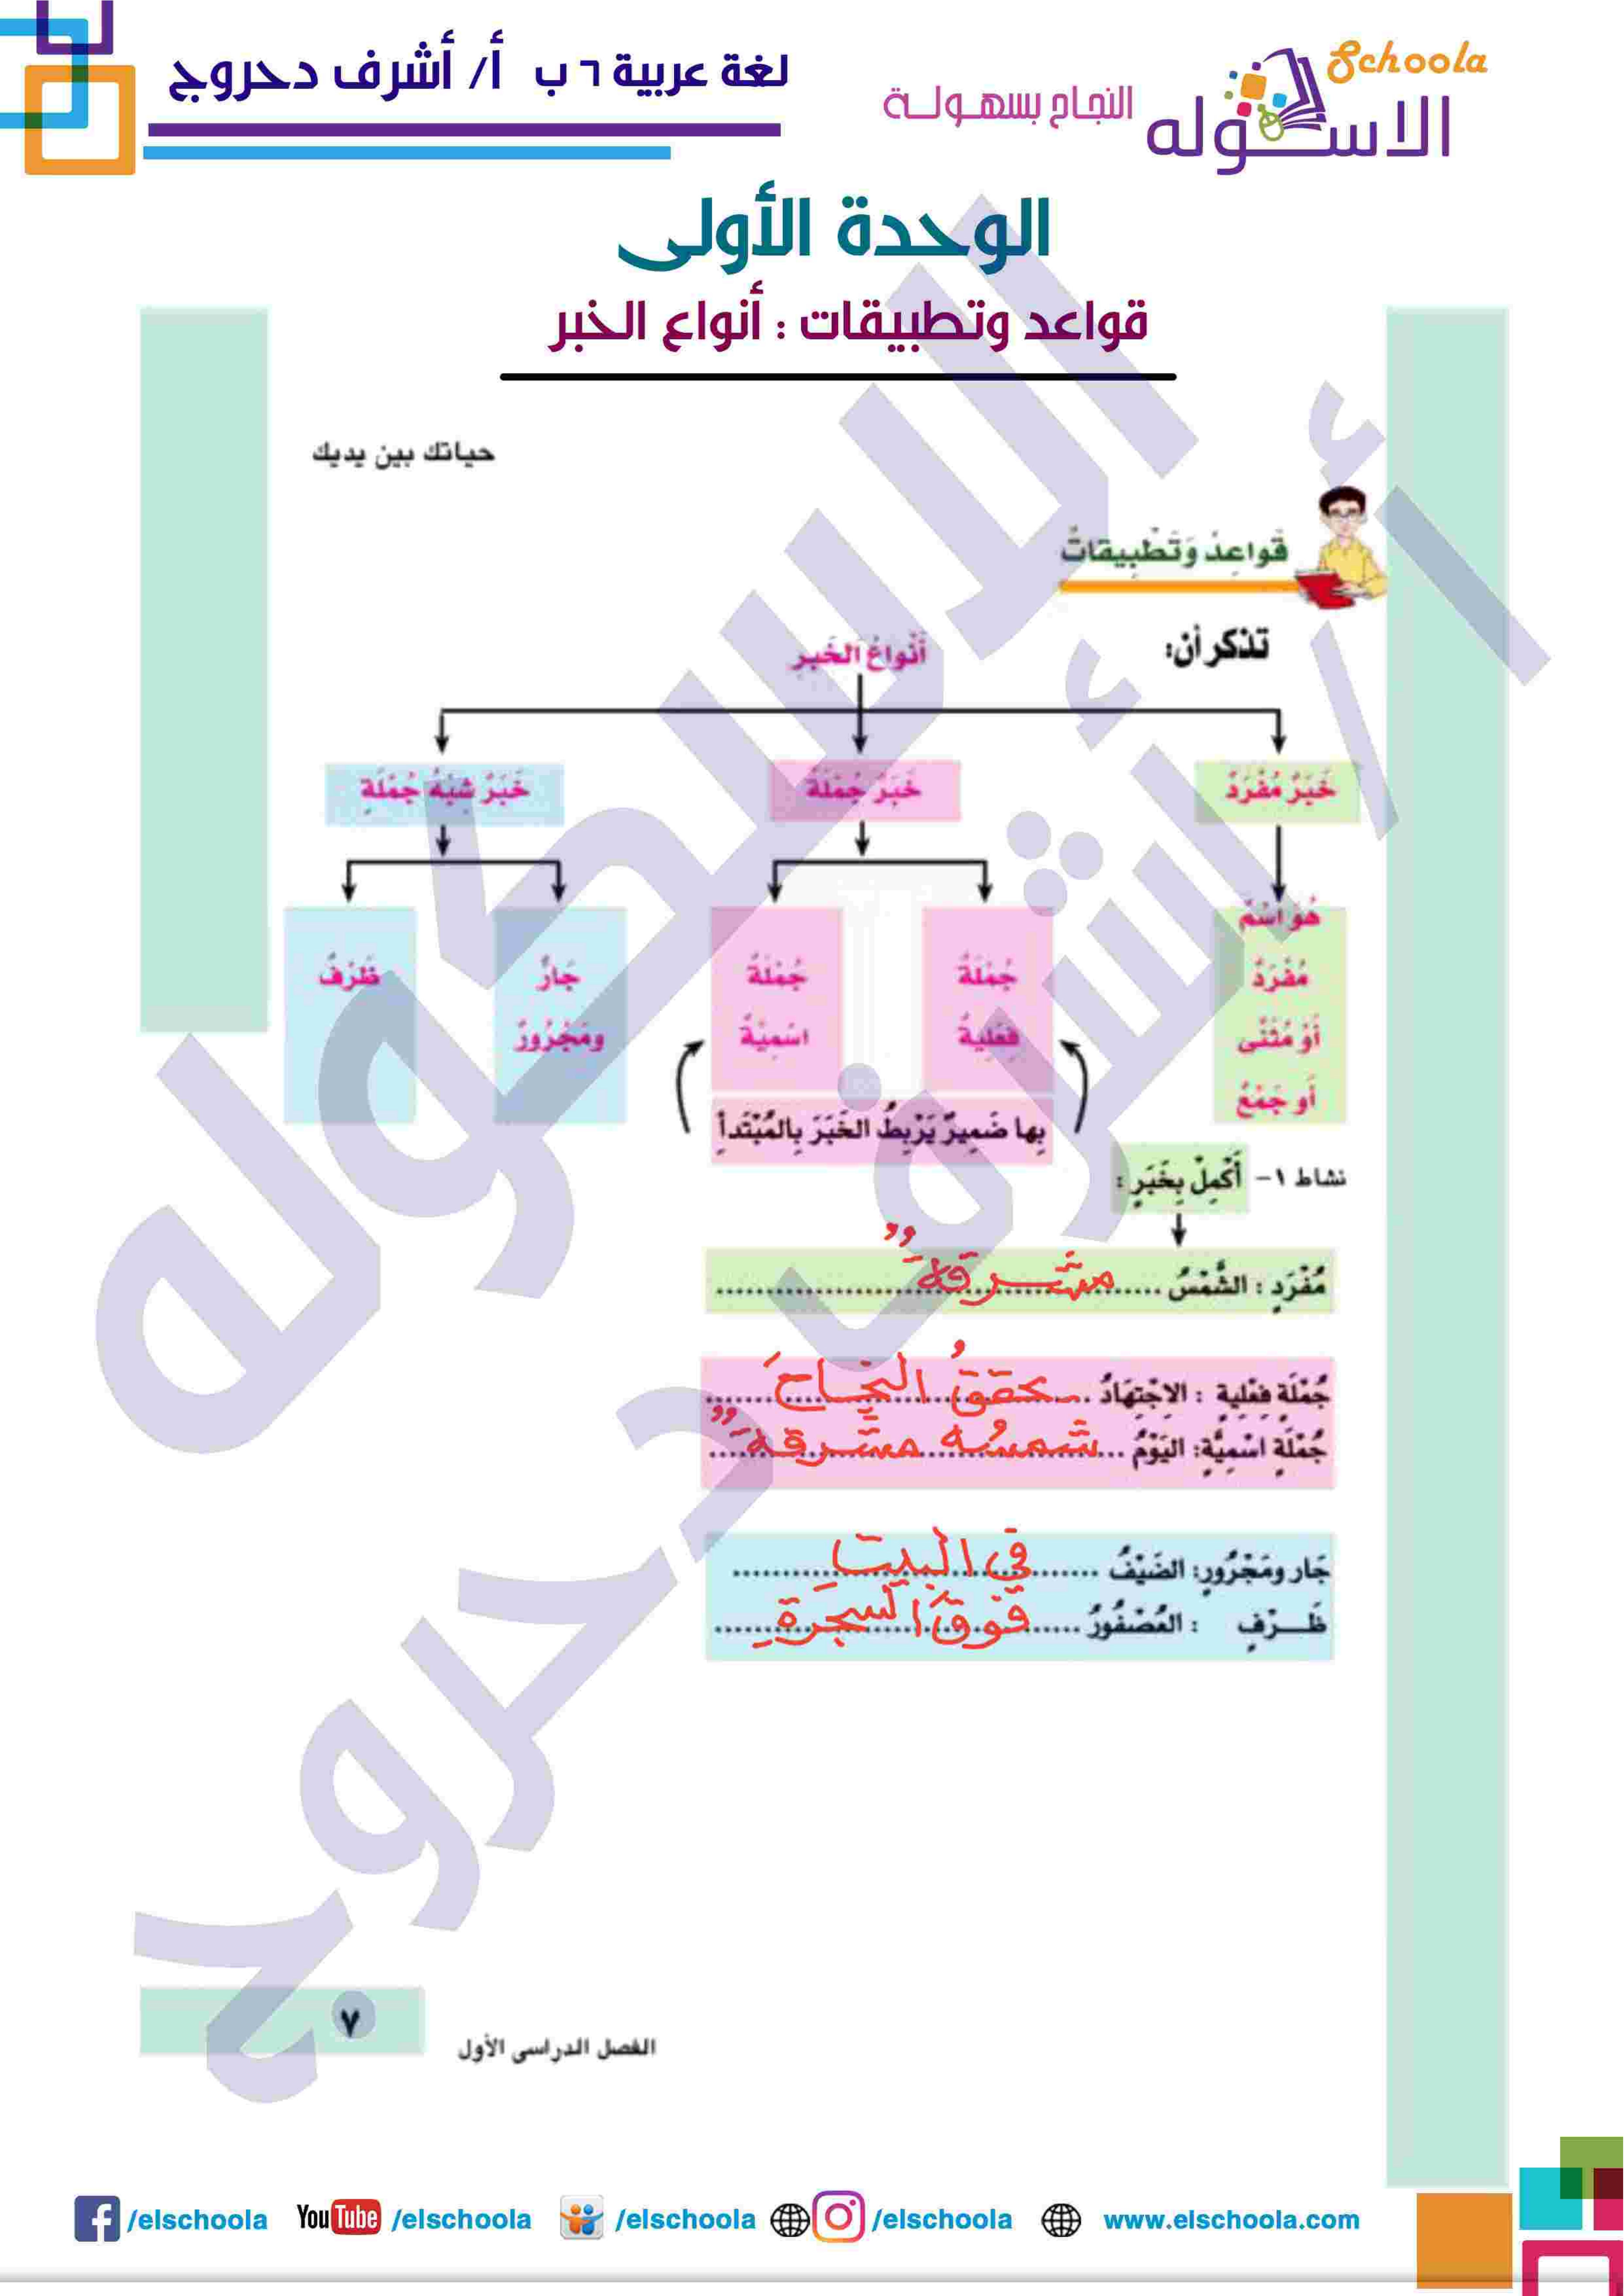 لغة عربية ٦ ب أ/ أشرف دحروج
Schoola
الاسكوله
النجاح بسهولة
الوحدة الأولى
قواعد وتطبيقات : أنواع الخبر
حياتك بين يديك
قَواعِدُ وَتَطْبِيقاتٌ
تذكر أن:
أَنْواعُ الخَبَرِ
خَبَرٌ مُفْرَدٌ
خَبَرُ جُمْلَةٌ
خَبَرُ شِبْهُ جُمْلَةٍ
هُوَ اسْمٌ
مُفْرَدٌ
أَوْ مُثَنَّى
أَو جَمْعٌ
جُمْلَةٌ
فِعْلِيةٌ
جُمْلَةٌ
اسْمِيَّةٌ
جَارٌ
ومَجْرُورٌ
ظَرْفٌ
بِها ضَمِيرٌ يَرْبِطُ الخَبَرَ بِالمُبْتَدأِ
نشاط ١- أَكْمِلْ بِخَبَرٍ :
مُفْرَدٍ : الشَّمْسُ ..... مشرقةٌ .....
جُمْلَةٍ فِعْلِيةٍ : الاِجْتِهَادُ ..... يحققُ النجاحَ .....
جُمْلَةٍ اسْمِيَّةٍ: اليَوْمُ ..... شمسُه مشرقةٌ .....
جَار ومَجْرُورٍ: الضَيْفُ ..... فى البيت .....
ظَـــرْفٍ : العُصْفُورُ ..... فوقَ الشجرةِ .....
٧
الفصل الدراسى الأول
/elschoola
YouTube /elschoola
/elschoola
/elschoola
www.elschoola.com
الاسكوله
أ / أشرف دحروج